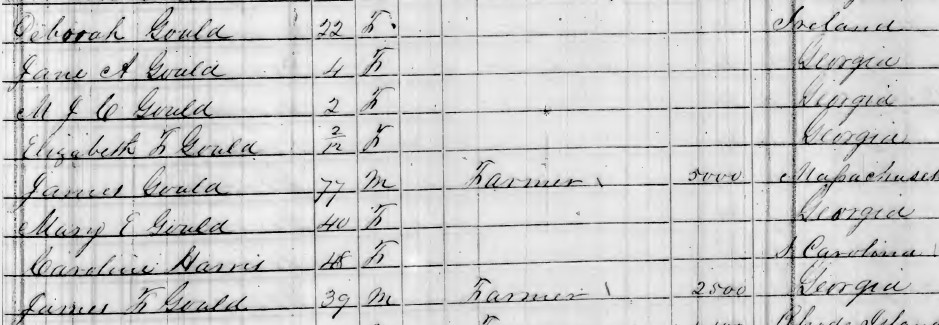 Deborah Gould 22 F Ireland
Jane A Gould 4 F Georgia
M J C Gould 2 F Georgia
Elizabeth F Gould 2/12 F Georgia
James Gould 77 M Farmer 5000 Massachuset
Mary E Gould 40 F Georgia
Caroline Harris 48 F Carolina
James F Gould 39 M Farmer 2500 Georgia
Rhode Island